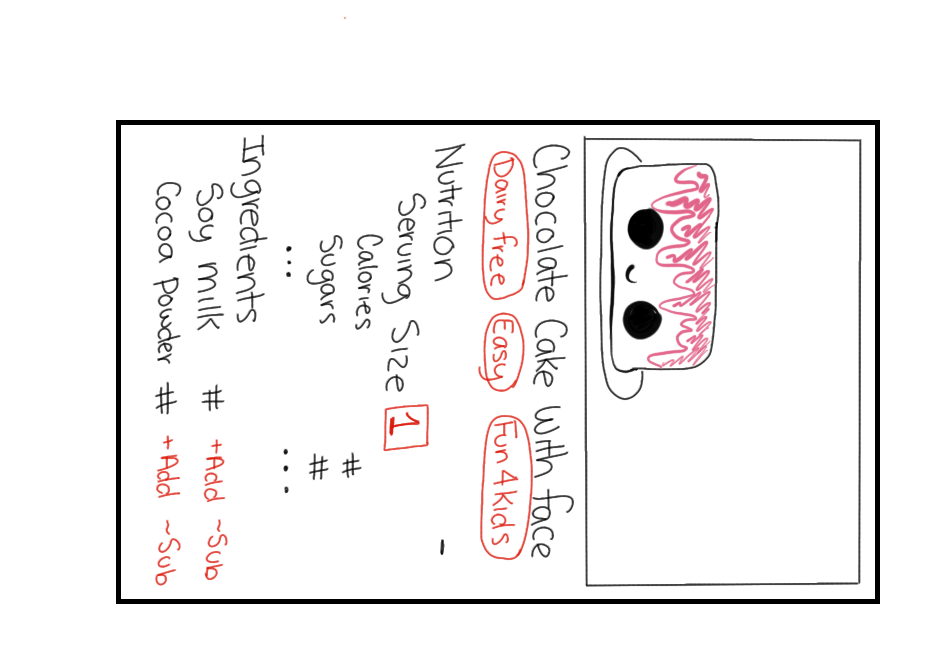 Chocolate Cake With face
Dairy free Easy Fun 4 kids
Nutrition -
Serving Size 1
Calories #
Sugars #
... ...
Ingredients
Soy milk # +Add ~Sub
Cocoa Powder # +Add ~Sub